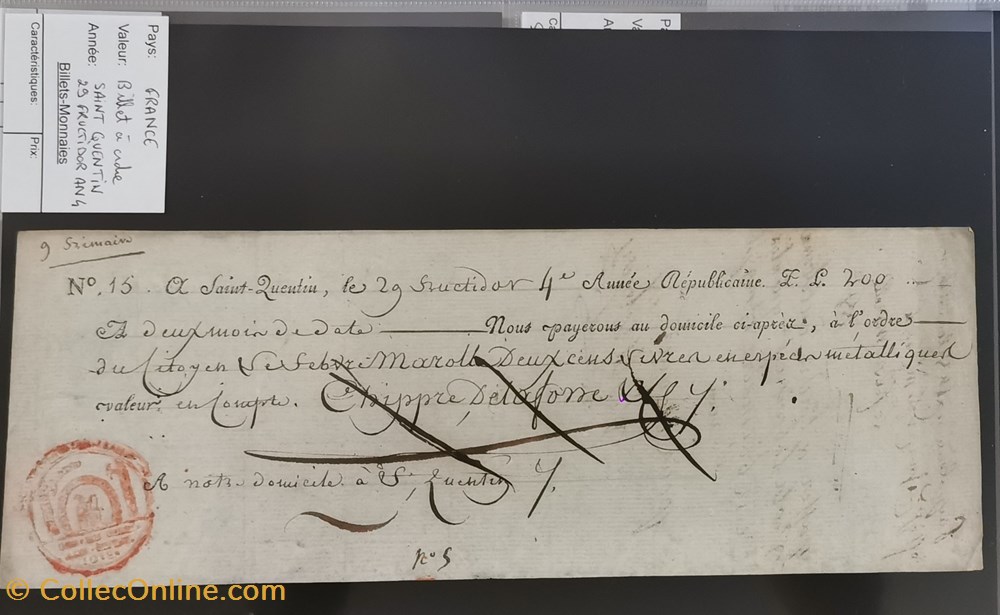 Pays: FRANCE
Valeur: Billet à ordre
Année: SAINT QUENTIN
29 FRUCTIDOR AN 4
Billets-Monnaies
Caractéristiques:
Prix:
9 frimaire
No. 15. A Saint-Quentin, le 29 fructidor 4e Année Républicaine. 200
A deux mois de date Nous payerons au domicile ci-après, à l'ordre
du Citoyen Lefebvre Deux cens Livres en espèces métalliques
valeur en Compte.
A notre domicile à St Quentin
No 5
© CollecOnline.com